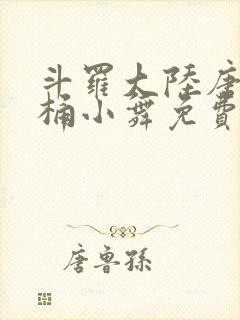 斗羅大陸唐
桶小舞免費
唐魯孫